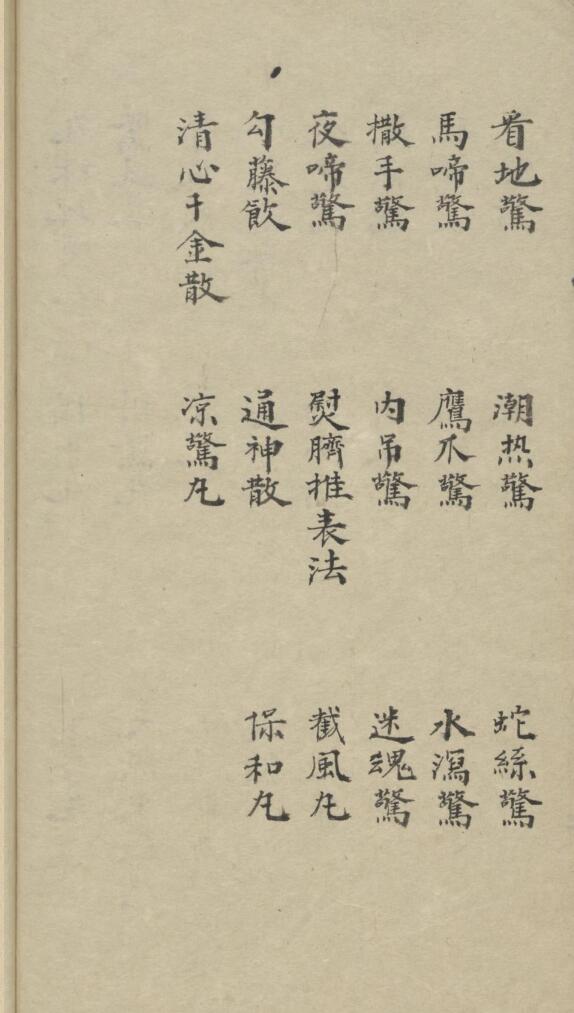 看地驚 潮热驚 蛇絲驚
馬啼驚 鷹爪驚 水瀉驚
撒手驚 内吊驚 迷魂驚
夜啼驚 熨臍推表法 截風丸
勾藤飲 通神散 保和丸
清心千金散 凉驚丸